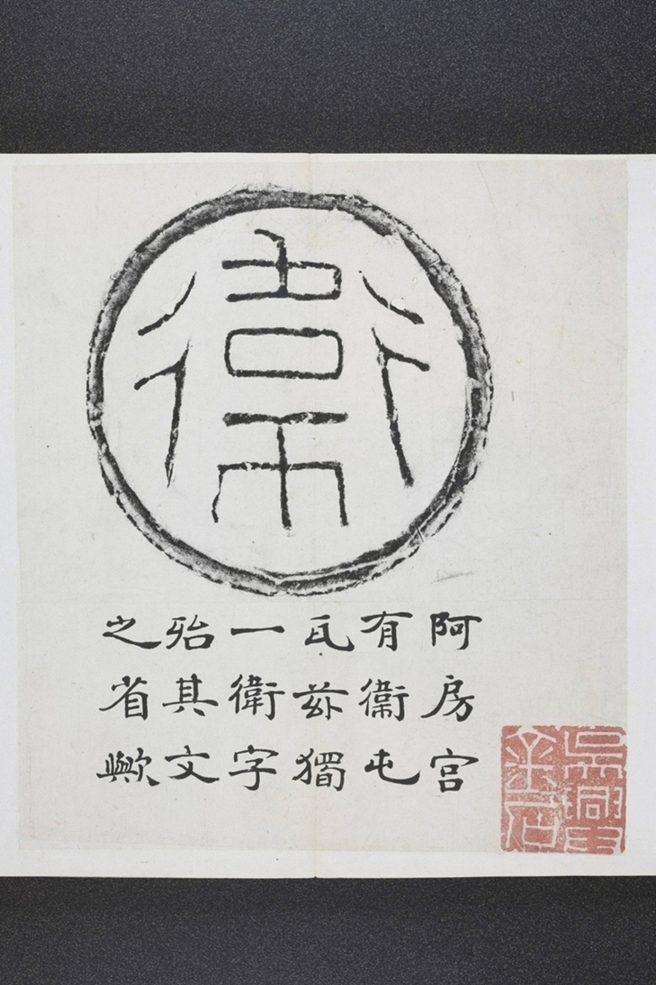 衛
阿房宫
有衞屯
瓦茲獨
一衛字
殆其文
之省歟